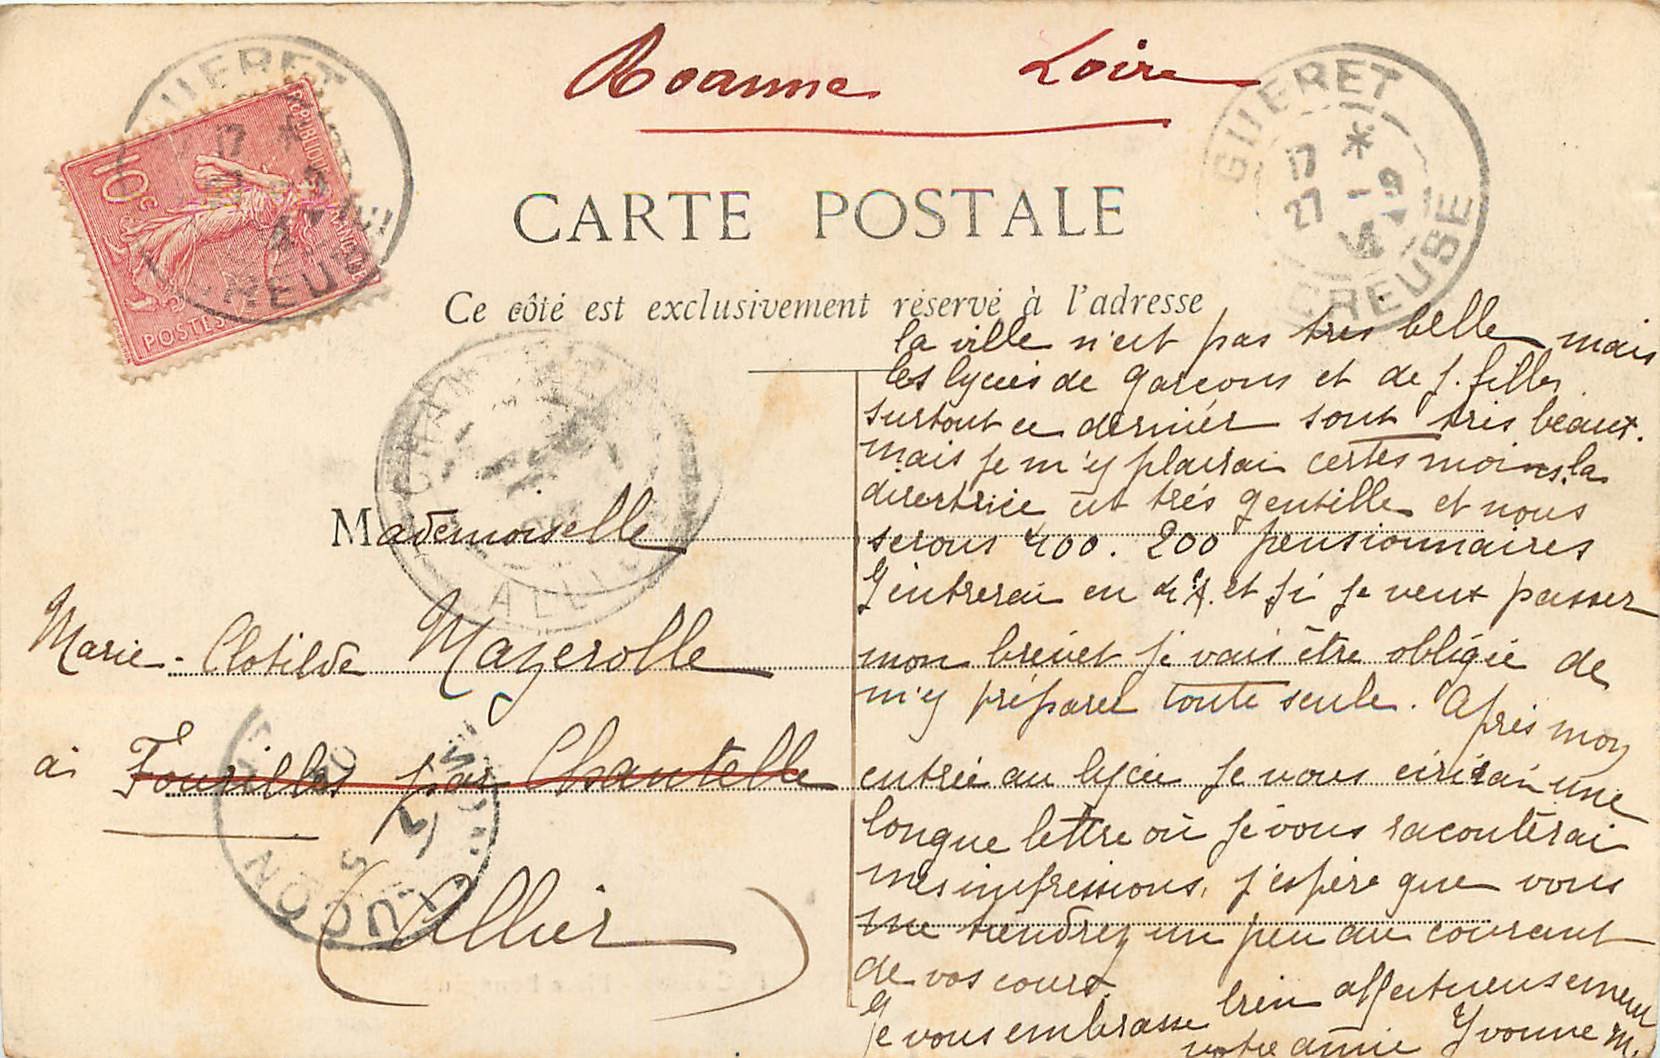 Roanne Loire
GUERET
17 *
27 - 9
CREUSE
GUERET
17 *
CREUSE
10c
REPUBLIQUE FRANÇAISE
POSTES
CARTE POSTALE
Ce côté est exclusivement réservé à l'adresse
ALLIER
Mademoiselle
Marie-Clotilde Mazerolle
à Fourilles par Chantelle
(Allier)
la ville n'est pas tres belle mais
les lycées de garçons et de j. filles
surtout ce dernier sont très beaux.
mais je m'y plairai certes moins. la
directrice est très gentille et nous
serons 400. 200 pensionnaires
J'entrerai en et si je veux passer
mon brevet je vais être obligée de
m'y préparer toute seule. Après mon
entrée au lycée je vous écrirai une
longue lettre où je vous raconterai
mes impressions, j'espère que vous
me tiendrez un peu au courant
de vos cours.
Je vous embrasse bien affectueusement
votre amie Yvonne M.